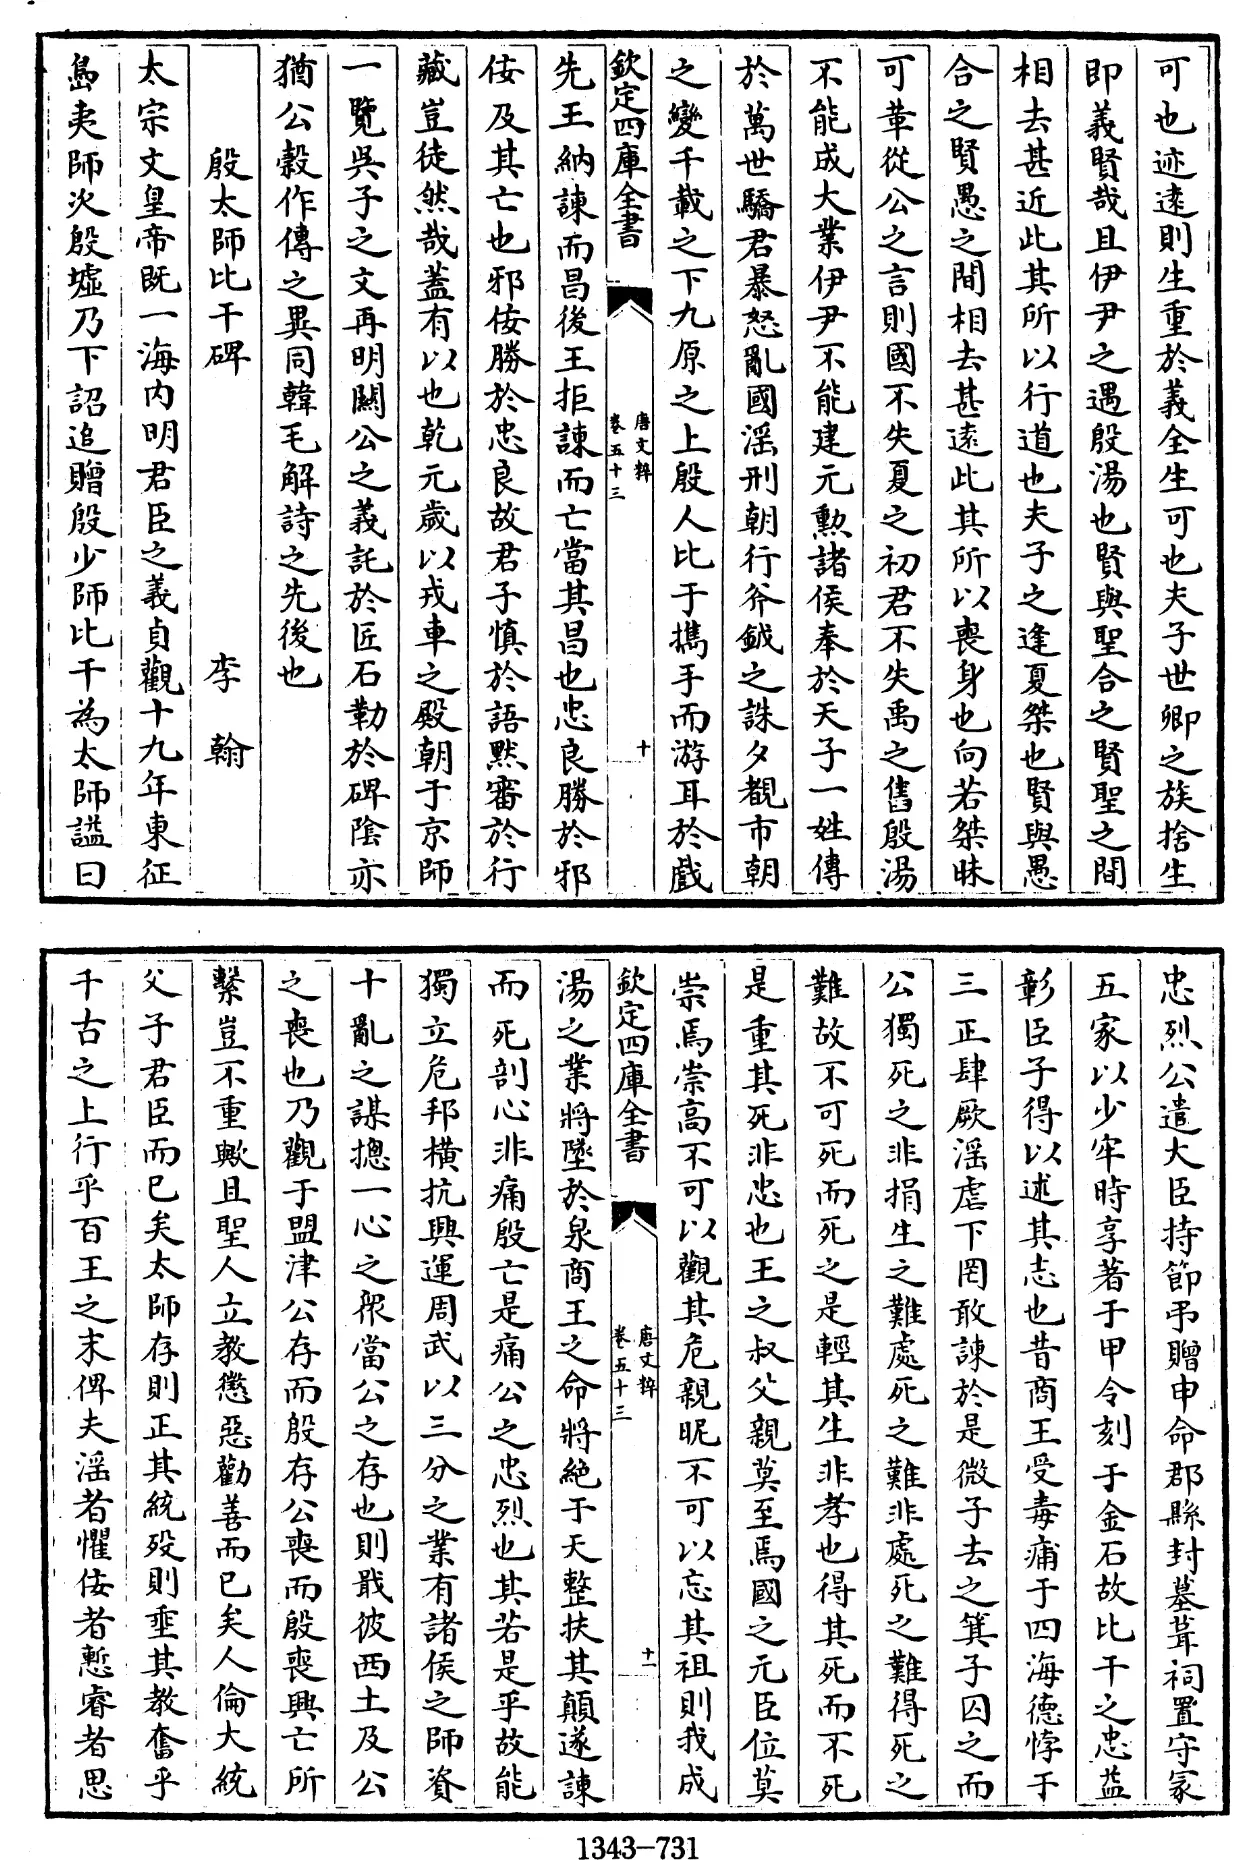 可也迹逺則生重於義全生可也夫子世卿之族捨生
即義賢哉且伊尹之遇殷湯也賢與聖合之賢聖之間
相去甚近此其所以行道也夫子之逢夏桀也賢與愚
合之賢愚之間相去甚逺此其所以喪身也向若桀昧
可革從公之言則國不失夏之初君不失禹之舊殷湯
不能成大業伊尹不能建元勲諸侯奉於天子一姓傳
於萬世驕君暴怒亂國滛刑朝行斧鉞之誅夕覩市朝
之變千載之下九原之上殷人比于攜手而游耳於戲
欽定四庫全書
唐文粹
卷五十三
十
先王納諫而昌後王拒諫而亡當其昌也忠良勝於邪
佞及其亡也邪佞勝於忠良故君子慎於語黙審於行
藏豈徒然哉葢有以也乾元歲以戎車之殿朝于京師
一覽吳子之文再明闗公之義託於匠石勒於碑陰亦
猶公穀作傳之異同韓毛解詩之先後也
殷太師比干碑
李翰
太宗文皇帝既一海内明君臣之義貞觀十九年東征
島夷師次殷墟乃下詔追贈殷少師比干為太師諡曰
忠烈公遣大臣持節弔贈申命郡縣封墓葺祠置守冢
五家以少牢時享著于甲令刻于金石故比干之忠益
彰臣子得以述其志也昔商王受毒痡于四海德悖于
三正肆厥滛虐下罔敢諫於是微子去之箕子囚之而
公獨死之非捐生之難處死之難非處死之難得死之
難故不可死而死之是輕其生非孝也得其死而不死
是重其死非忠也王之叔父親莫至焉國之元臣位莫
崇焉崇髙不可以觀其危親昵不可以忘其祖則我成
欽定四庫全書
唐文粹
卷五十三
十一
湯之業將墜於泉商王之命將絶于天整扶其顛遂諫
而死剖心非痛殷亡是痛公之忠烈也其若是乎故能
獨立危邦横抗興運周武以三分之業有諸侯之師資
十亂之謀摠一心之衆當公之存也則戢彼西土及公
之喪也乃觀于盟津公存而殷存公喪而殷喪興亡所
繫豈不重歟且聖人立教懲惡勸善而已矣人倫大統
父子君臣而已矣太師存則正其統殁則垂其教奮乎
千古之上行乎百王之末俾夫滛者懼佞者慙睿者思
1343-731